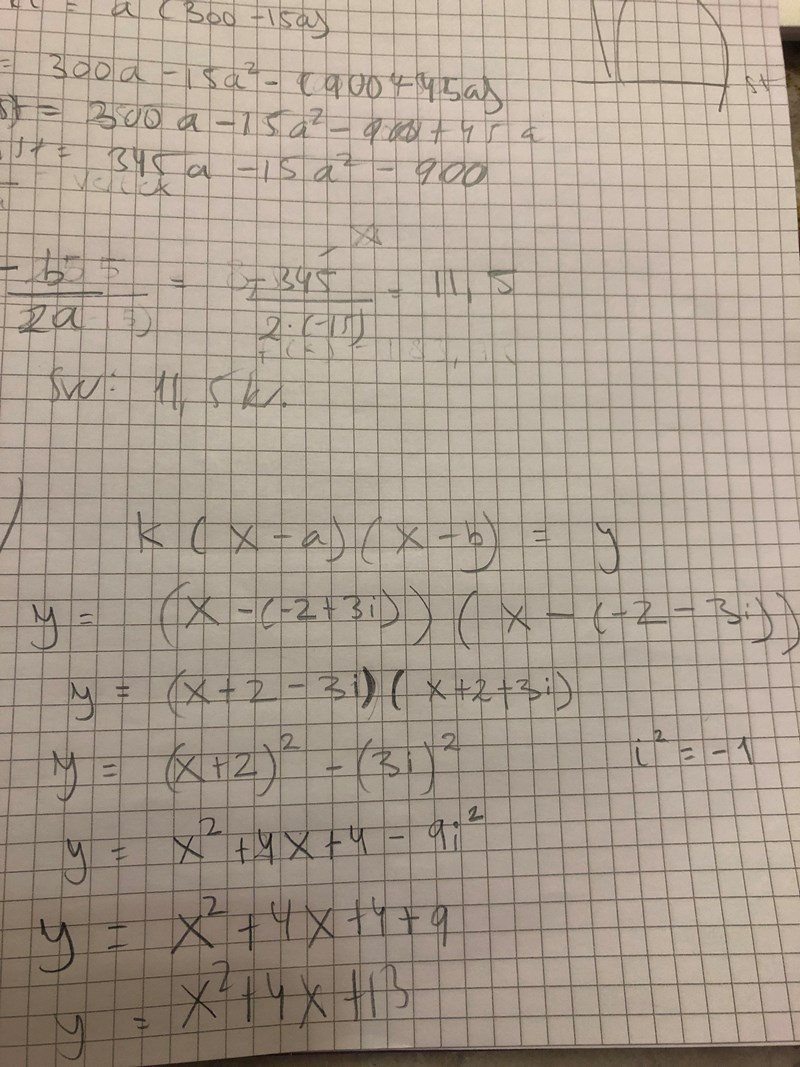 = a (300 - 15a)
= 300a - 15a² - (900 + 45a)
= 300a - 15a² - 900 + 45a
= 345a - 15a² - 900
x
- b / 2a = - 345 / 2·(-15) = 11,5
Sv: 11,5 kr.
k (x - a) (x - b) = y
y = (x - (-2 + 3i)) (x - (-2 - 3i))
y = (x + 2 - 3i) (x + 2 + 3i)
y = (x + 2)² - (3i)² i² = -1
y = x² + 4x + 4 - 9i²
y = x² + 4x + 4 + 9
y = x² + 4x + 13